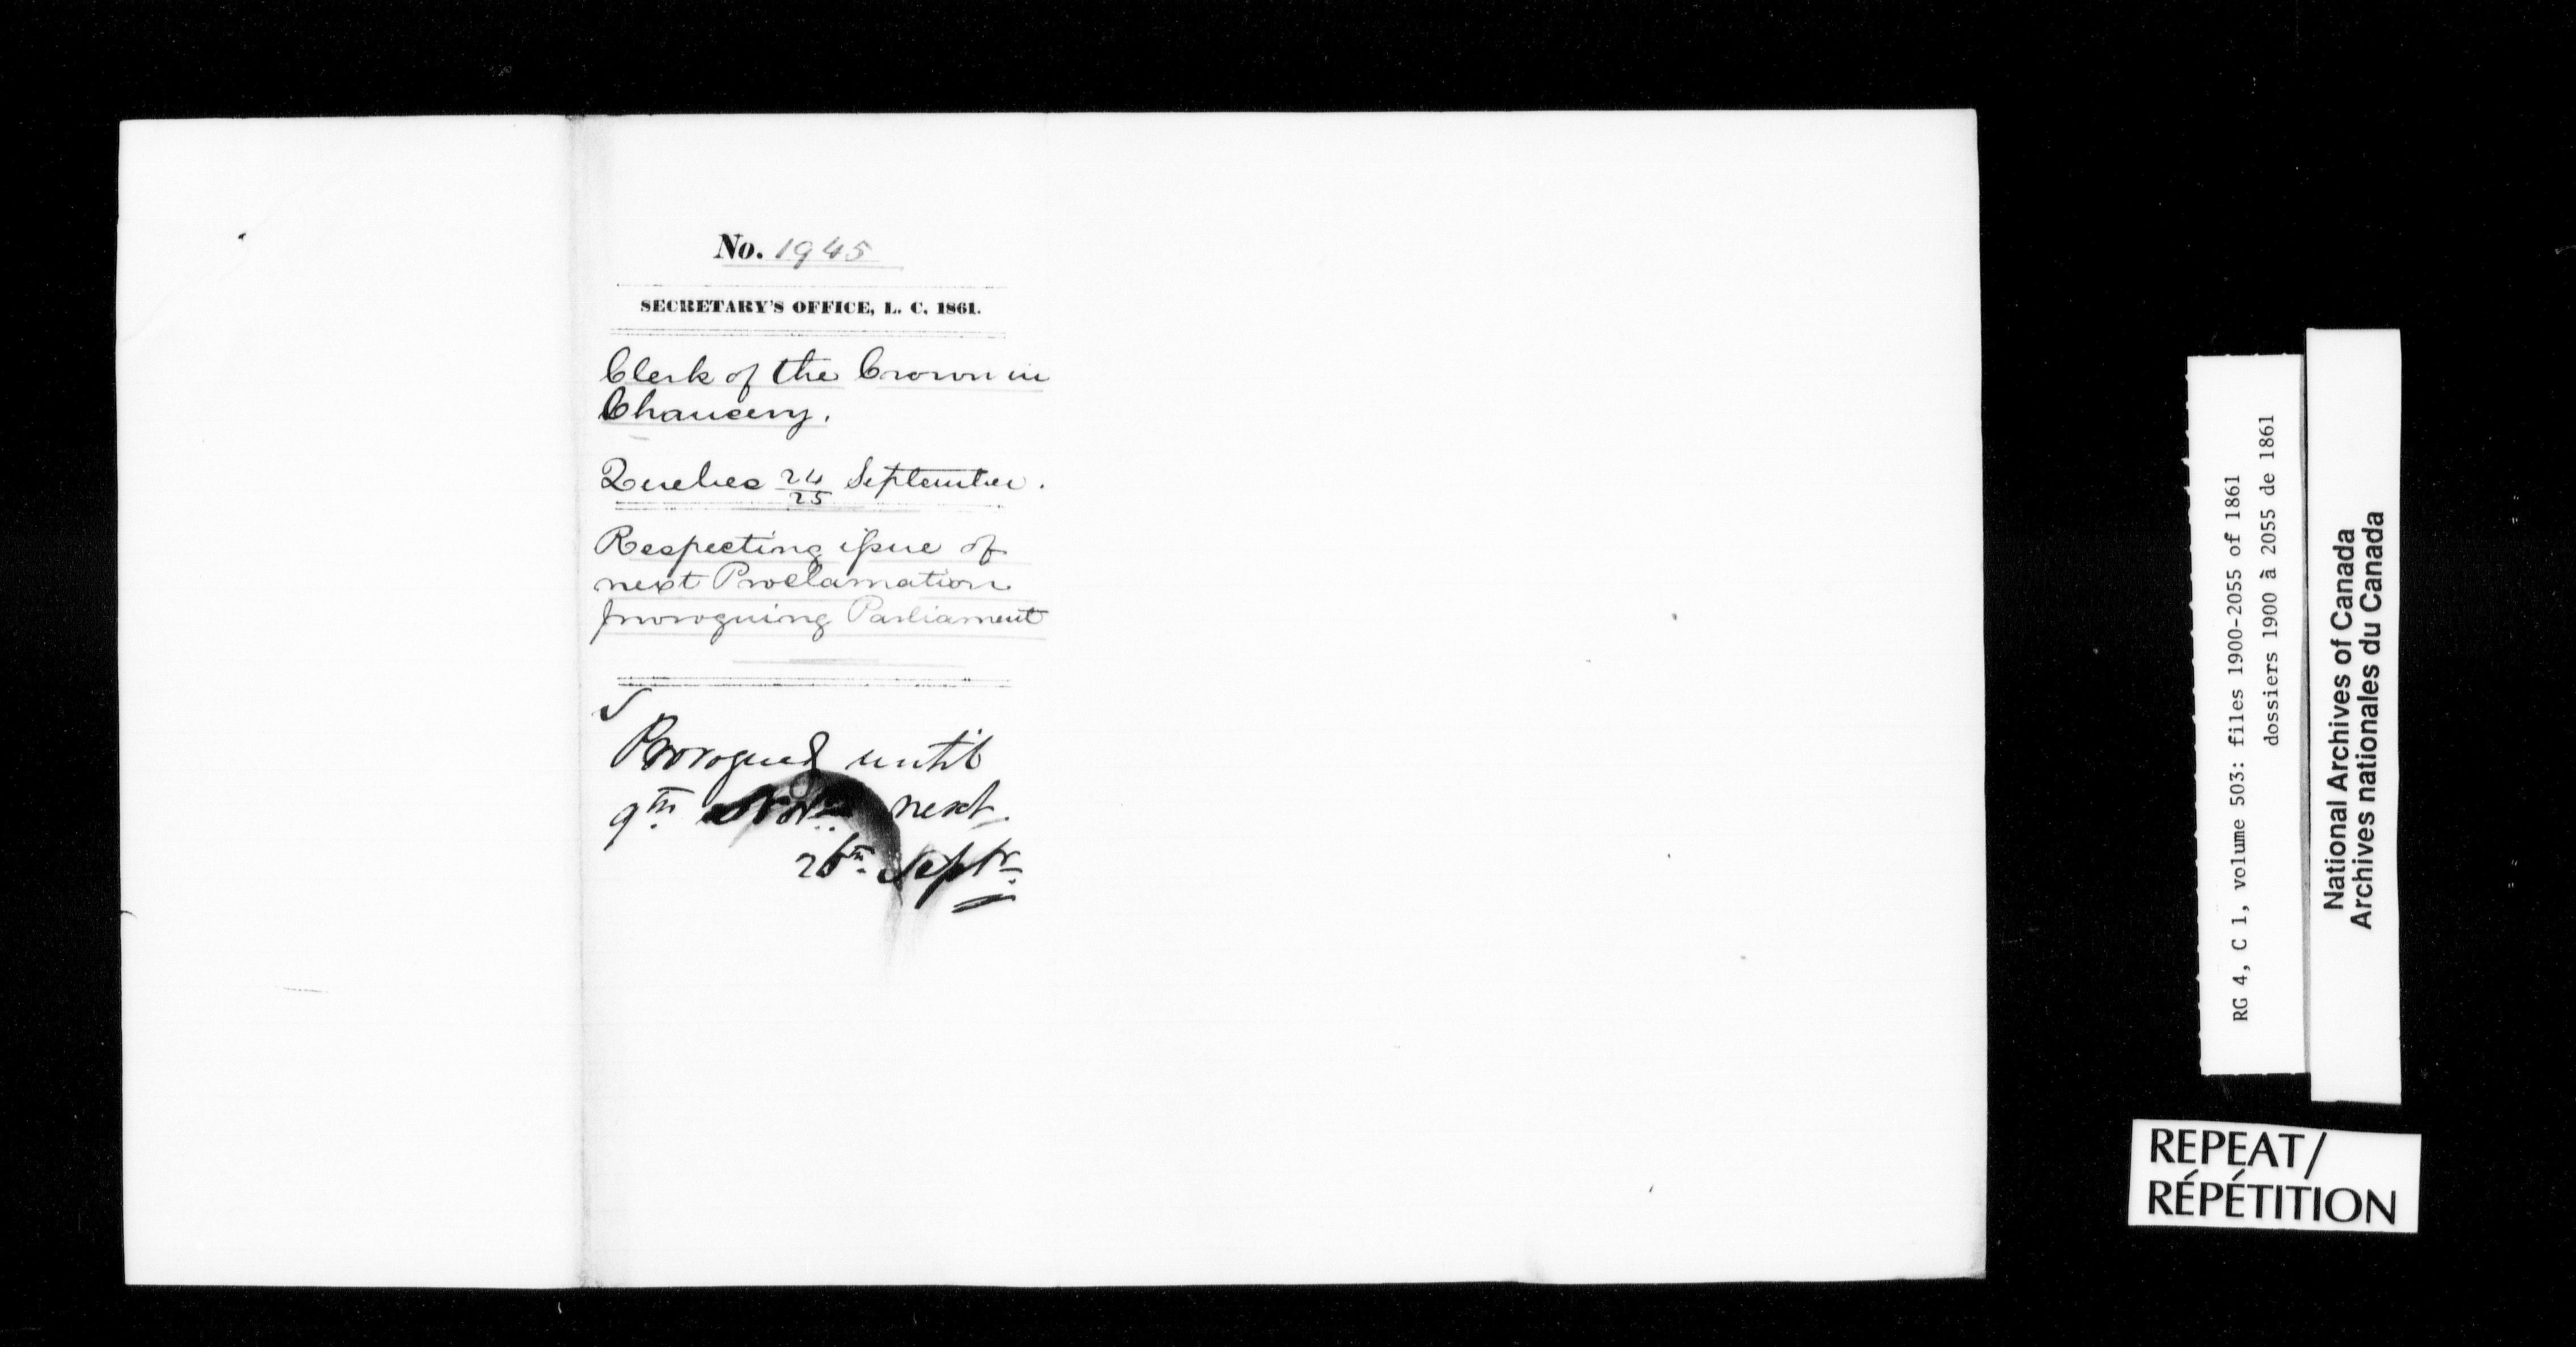 No. 1945
SECRETARY'S OFFICE, L. C. 1861.
Clerk of the Crown in
Chancery.
Quebec 24/25 September.
Respecting issue of
next Proclamation
proroguing Parliament
Prorogued until
9th Novr next.
26th Septr
RG 4, C 1, volume 503: files 1900-2055 of 1861
dossiers 1900 à 2055 de 1861
National Archives of Canada
Archives nationales du Canada
REPEAT/
RÉPÉTITION